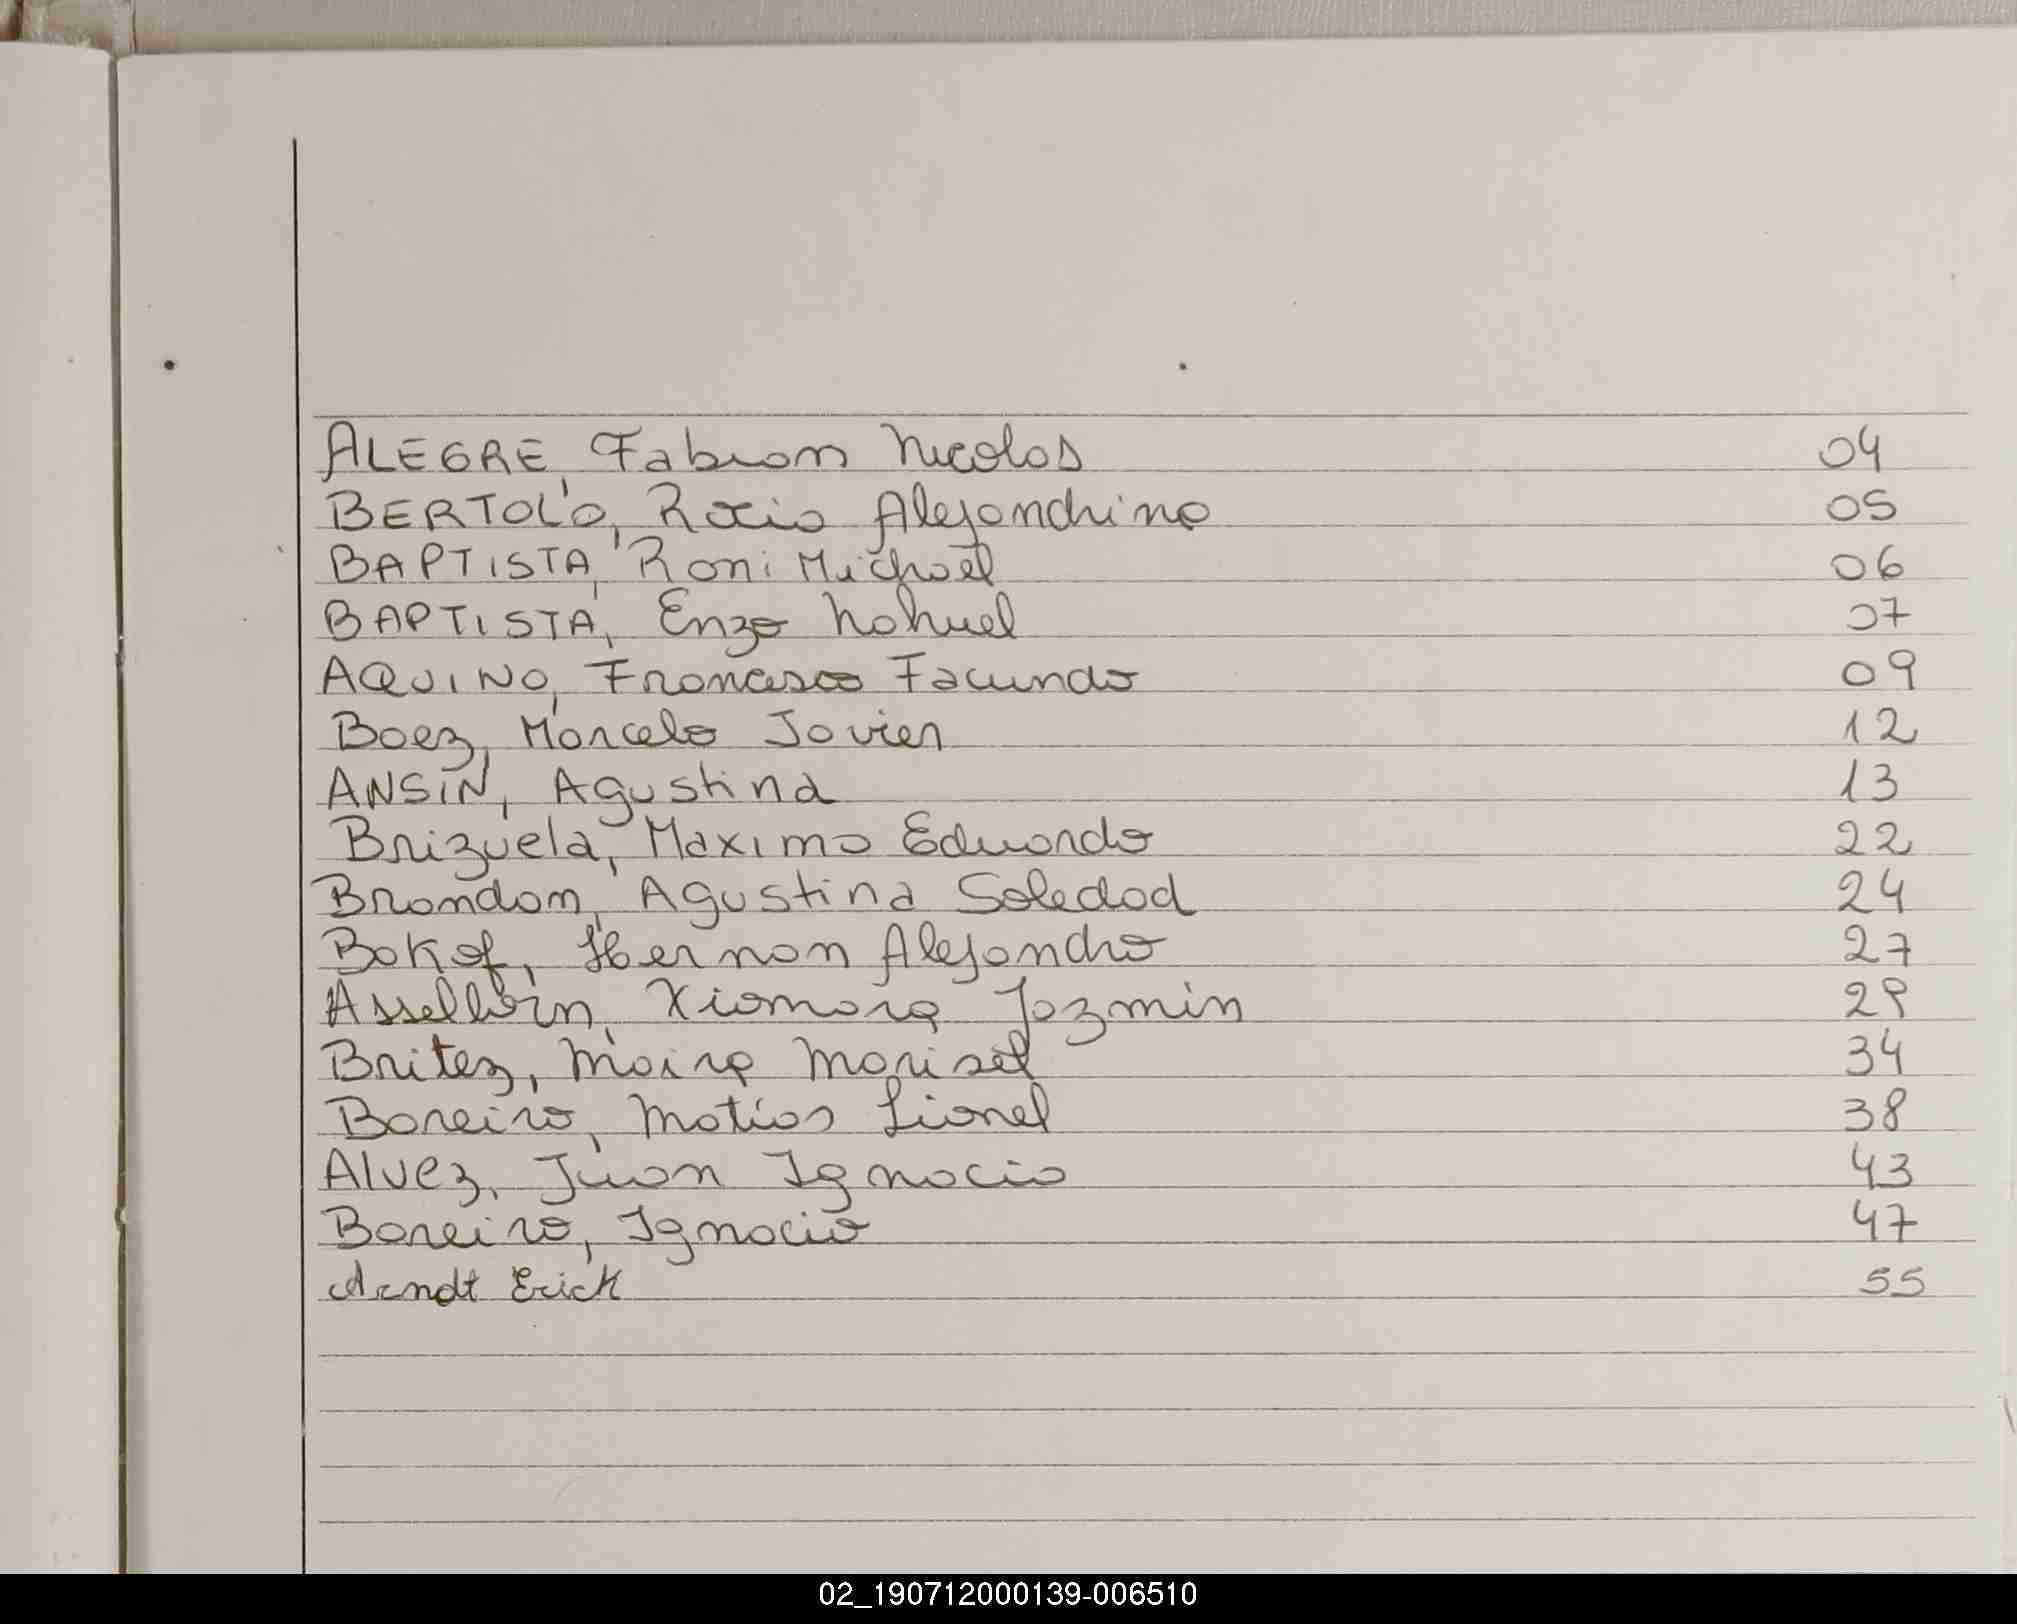 ALEGRE, Fabian Nicolas 04
BERTOLO, Rocio Alejandrina 05
BAPTISTA, Roni Michael 06
BAPTISTA, Enzo Nahuel 07
AQUINO, Francesco Facundo 09
Baez, Marcelo Javier 12
ANSIN, Agustina 13
Brizuela, Maximo Eduardo 22
Brondom, Agustina Soledad 24
Bokof, Hernan Alejandro 27
Asselborn, Xiomara Jazmin 29
Britez, Maira Marisel 34
Bareiro, Matias Lionel 38
Alvez, Juan Ignacio 43
Bareiro, Ignacio 47
Arndt Erick 55
02_190712000139-006510